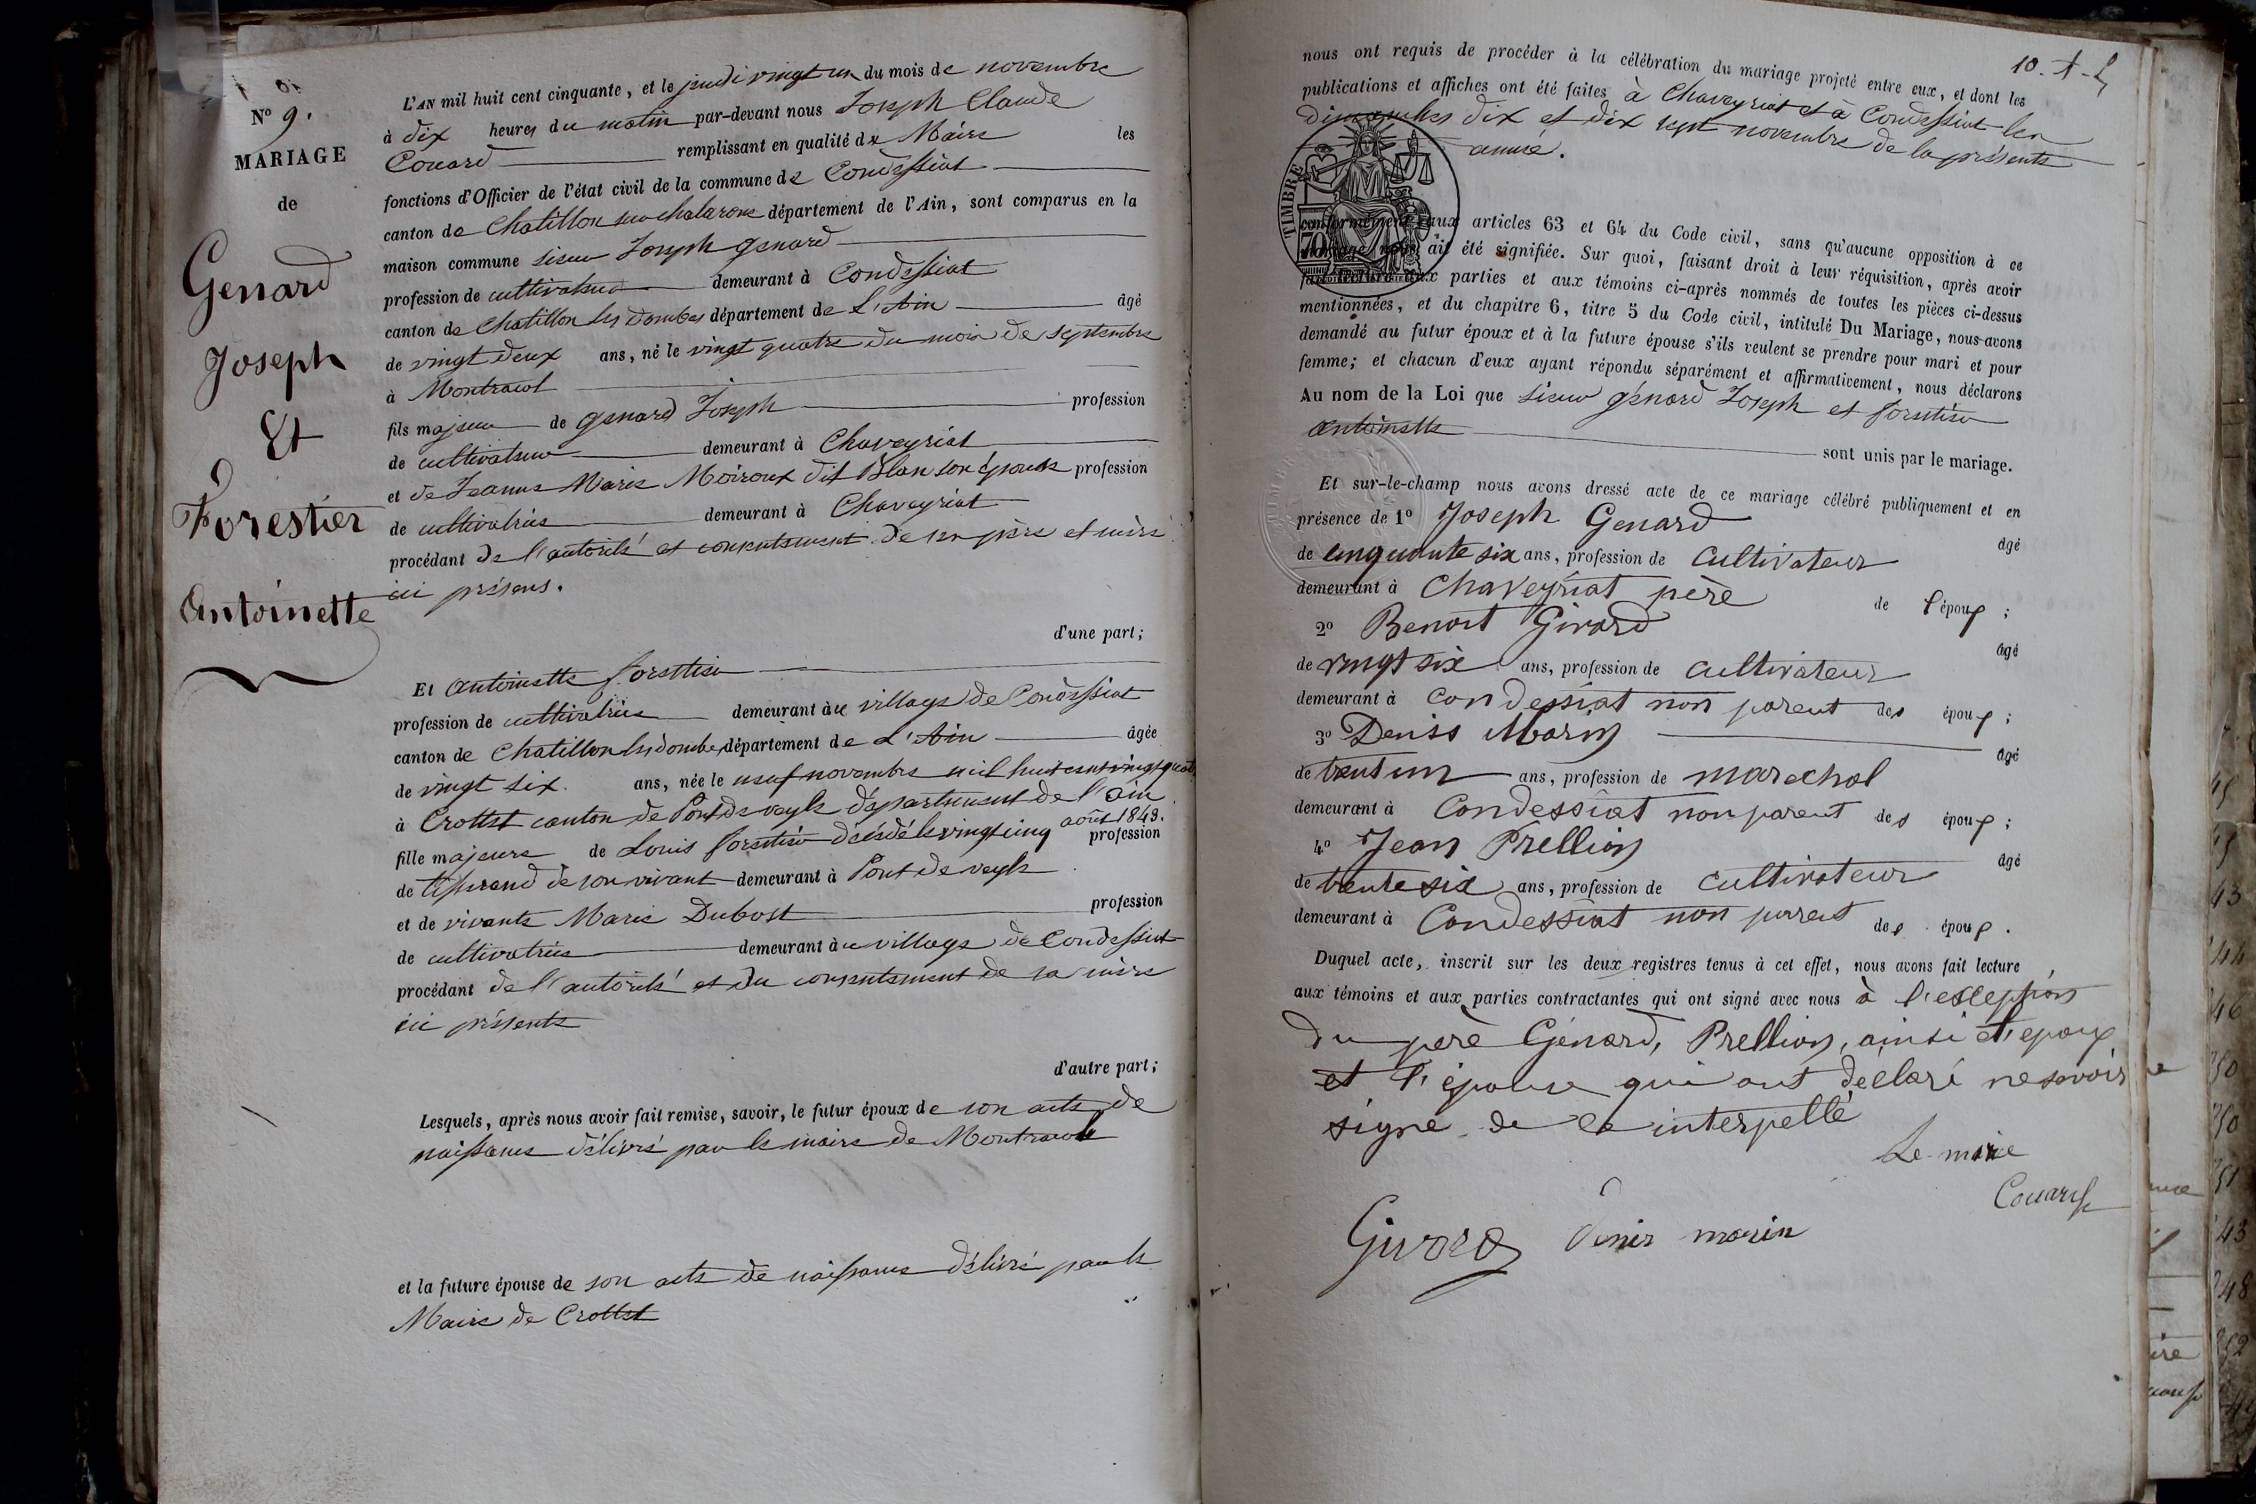 N° 9.
MARIAGE
de
Genard
Joseph
Et
Forestier
Antoinette
L'AN mil huit cent cinquante, et le jeudi vingt un du mois de novembre
à dix heures du matin par-devant nous Joseph Claude
Couard remplissant en qualité de Maire les
fonctions d'Officier de l'état civil de la commune de Condessiat
canton de Chatillon sur chalarone département de l'Ain, sont comparus en la
maison commune sieur Joseph genard
profession de cultivateur demeurant à Condessiat
canton de Chatillon les dombes département de L'Ain âgé
de vingt deux ans, né le vingt quatre du mois de septembre
à Montracol
fils majeur de genard Joseph profession
de cultivateur demeurant à Chaveyriat
et de Jeanne Marie Moiroux dit Blan son épouse profession
de cultivatrice demeurant à Chaveyriat
procédant de l'autorité et consentement de ses père et mère
ici présens.
d'une part;
Et antoinette foresttier
profession de cultivatrice demeurant au village de Condessiat
canton de Chatillon les dombes département de L'Ain âgée
de vingt six. ans, née le neuf novembre mil huit cent vingt quatre
à Crottet canton de Pont de veyle département de l'ain
août 1843.
fille majeure de Louis foresttier décédé le vingt cinq profession
de tisserand de son vivant demeurant à Pont de veyle
et de vivante Marie Dubost profession
de cultivatrice demeurant au village de Condessiat
procédant de l'autorité et du consentement de sa mère
ici présente
d'autre part;
Lesquels, après nous avoir fait remise, savoir, le futur époux de son acte de
naissance délivré par le maire de Montracole
et la future épouse de son acte de naissance délivré par le
Maire de Crottet
10.
nous ont requis de procéder à la célébration du mariage projeté entre eux, et dont les
publications et affiches ont été faites à Chaveyriat et à Condessiat les
dimanches dix et dix sept novembre de la présente
année.
TIMBRE
conformément aux articles 63 et 64 du Code civil, sans qu'aucune opposition à ce
mariage nous ait été signifiée. Sur quoi, faisant droit à leur réquisition, après avoir
fait lecture aux parties et aux témoins ci-après nommés de toutes les pièces ci-dessus
mentionnées, et du chapitre 6, titre 5 du Code civil, intitulé Du Mariage, nous avons
demandé au futur époux et à la future épouse s'ils veulent se prendre pour mari et pour
femme; et chacun d'eux ayant répondu séparément et affirmativement, nous déclarons
Au nom de la Loi que sieur génard Joseph et foresttier
antoinette
sont unis par le mariage.
Et sur-le-champ nous avons dressé acte de ce mariage célébré publiquement et en
présence de 1° Joseph Genard âgé
de cinquante six ans, profession de Cultivateur
demeurant à Chaveyriat père de l'époux;
2° Benoit Girard âgé
de vingt six ans, profession de cultivateur
demeurant à Condessiat non parent des époux;
3° Denis Morin âgé
de trent un ans, profession de marechal
demeurant à Condessiat non parent des époux;
4° Jean Prellion âgé
de trente six ans, profession de cultivateur
demeurant à Condessiat non parent des époux.
Duquel acte, inscrit sur les deux registres tenus à cet effet, nous avons fait lecture
aux témoins et aux parties contractantes qui ont signé avec nous à l'esseption
du père Génard, Prellion, ainsi et l'epoux
et l'épouse qui ont déclaré ne savoir
signé de ce interpellé
Le maire
Couard
Girard denis morin